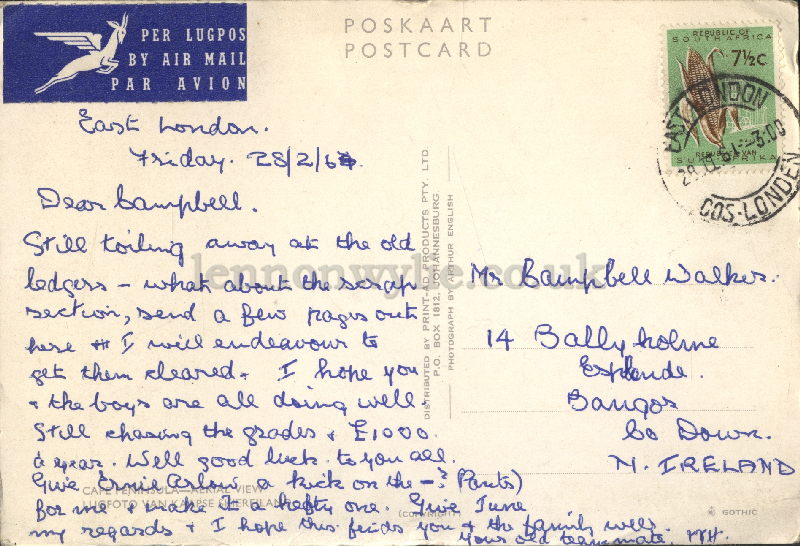 PER LUGPOS
BY AIR MAIL
PAR AVION
POSKAART
POSTCARD
REPUBLIC OF
SOUTH AFRICA
7½c
REPUBLIEK VAN
SUID-AFRIKA
EAST LONDON
OOS-LONDEN
East London.
Friday. 28/2/64.
Dear Campbell.
Still toiling away at the old
ledgers - what about the scrap
section, send a few pages out
here & I will endeavour to
get them cleared. I hope you
& the boys are all doing well.
Still chasing the grades & £1000.
a year. Well good luck to you all.
Give Ernie Arlow a kick on the - ? (Pants)
for me & make it a hefty one. Give June
my regards & I hope this finds you & the family well.
Your old team mate.
DISTRIBUTED BY PRINT-AD PRODUCTS PTY. LTD.
P.O. BOX 1812, JOHANNESBURG
PHOTOGRAPH BY ARTHUR ENGLISH
Mr Campbell Walker.
14 Ballyholme
Esplende.
Bangor
Co Down.
N. IRELAND
CAPE PENINSULA—AERIAL VIEW
LUGFOTO VAN KAAPSE SKIEREILAND
(COPYRIGHT)
GOTHIC
lennonwylie.co.uk